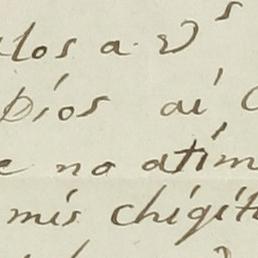 los a Vs
Dios aí
no atim
mis chigit